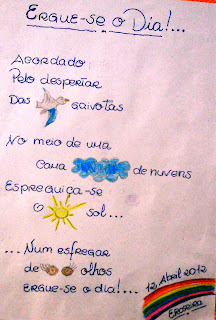 Ergue-se o Dia!...
Acordado
Pelo despertar
Das gaivotas
No meio de uma
Cama de nuvens
Espreguiça-se
O sol...
...Num esfregar
de olhos
Ergue-se o dia!...
12, Abril 2012
Ericeira